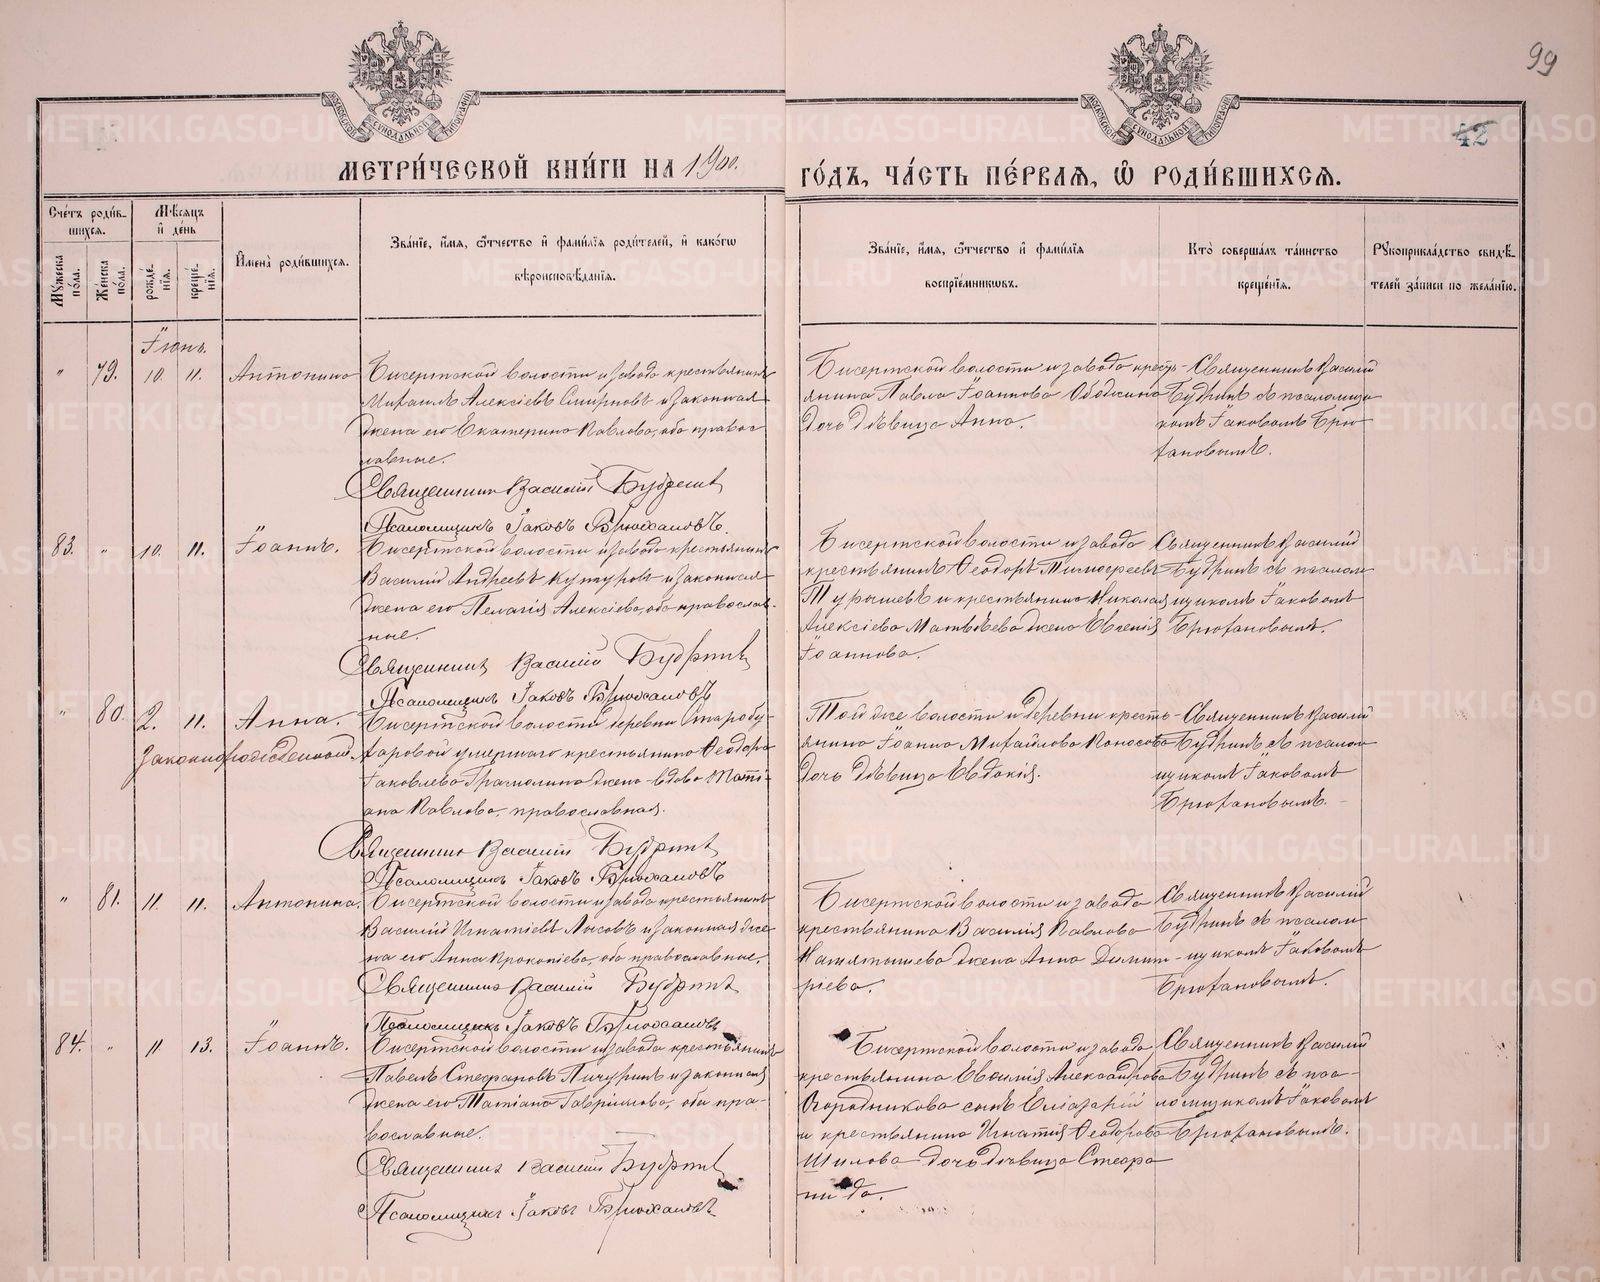 99
42
МЕТРИ́ЧЕСКОЙ КНИ́ГИ НА 1900.
ГО́ДЪ, ЧА́СТЬ ПЕ́РВАЯ, Ѡ҆ РОДИ́ВШИХСЯ.
Сче́тъ роди́в-
шихся.
Мꙋ́жеска по́ла.
Же́нска по́ла.
Мѣ́сяцъ
и҆ де́нь
рожде́нїя.
креще́нїя.
И҆мена̀ роди́вшихся.
Зва́нїе, и҆́мя, ѻ҆́тчество и҆ фами́лїя роди́телей, и҆ како́гѡ
вѣроисповѣ́данїя.
Зва́нїе, и҆́мя, ѻ҆́тчество и҆ фами́лїя
воспрїе́мникѡвъ.
Кто̀ соверша́лъ та́инство
креще́нїя.
Рꙋкоприкла́дство свидѣ́-
телей за́писи по жела́нїю.
Іюнь.
" 79. 10. 11. Антонина
Бисертской волости и завода крестьянинъ
Михаилъ Алексіевъ Смирновъ и законная
жена его Екатерина Павлова, оба правос
лавные.
Священникъ Василій Будринъ
Псаломщикъ Іаковъ Брюхановъ.
Бисертской волости и завода кресть-
янина Павла Іоаннова
дочь дѣвица Анна.
Священникъ Василій
Будринъ съ псаломщи
комъ Іаковомъ Брю
хановымъ.
83. " 10. 11. Іоаннъ.
Бисертской волости и завода крестьянинъ
Василій Андреевъ и законная
жена его Пелагія Алексіева, оба православ-
ные.
Священникъ Василій Будринъ
Псаломщикъ Іаковъ Брюхановъ
Бисертской волости и завода
крестьянинъ Ѳеодоръ Тимофеевъ
и крестьянина Николая
Алексіева Матвѣева жена Евгенія
Іоаннова.
Священникъ Василій
Будринъ съ псалом
щикомъ Іаковомъ
Брюхановымъ.
" 80. 2. 11. Анна.
Законнорожденной.
Бисертской волости деревни Старобу-
харовой умершаго крестьянина Ѳеодора
Іаковлева жена вдова Тати-
ана Павлова, православная.
Священникъ Василій Будринъ
Псаломщикъ Іаковъ Брюхановъ
Той же волости и деревни кресть-
янина Іоанна Михайлова Коносова
дочь дѣвица Евдокія.
Священникъ Василій
Будринъ съ псалом
щикомъ Іаковомъ
Брюхановымъ.
" 81. 11. 11. Антонина.
Бисертской волости и завода крестьянинъ
Василій Игнатіевъ Лысовъ и законная же
на его Анна Прокопіева, оба православные.
Священникъ Василій Будринъ
Псаломщикъ Іаковъ Брюхановъ
Бисертской волости и завода
крестьянина Василія Павлова
жена Анна Димит-
ріева.
Священникъ Василій
Будринъ съ псалом
щикомъ Іаковомъ
Брюхановымъ.
84. " 11. 13. Іоаннъ.
Бисертской волости и завода крестьянинъ
Павелъ Стефановъ Пичугинъ и законная
жена его Татіана Гавріилова, оба пра-
вославные.
Священникъ Василій Будринъ
Псаломщикъ Іаковъ Брюхановъ
Бисертской волости и завода
крестьянина Александрова
Огородникова сынъ
и крестьянина Игнатія Ѳеодорова
Шилова дочь дѣвица Стефа
нида.
Священникъ Василій
Будринъ съ пса-
ломщикомъ Іаковомъ
Брюхановымъ.
METRIKI.GASO-URAL.RU